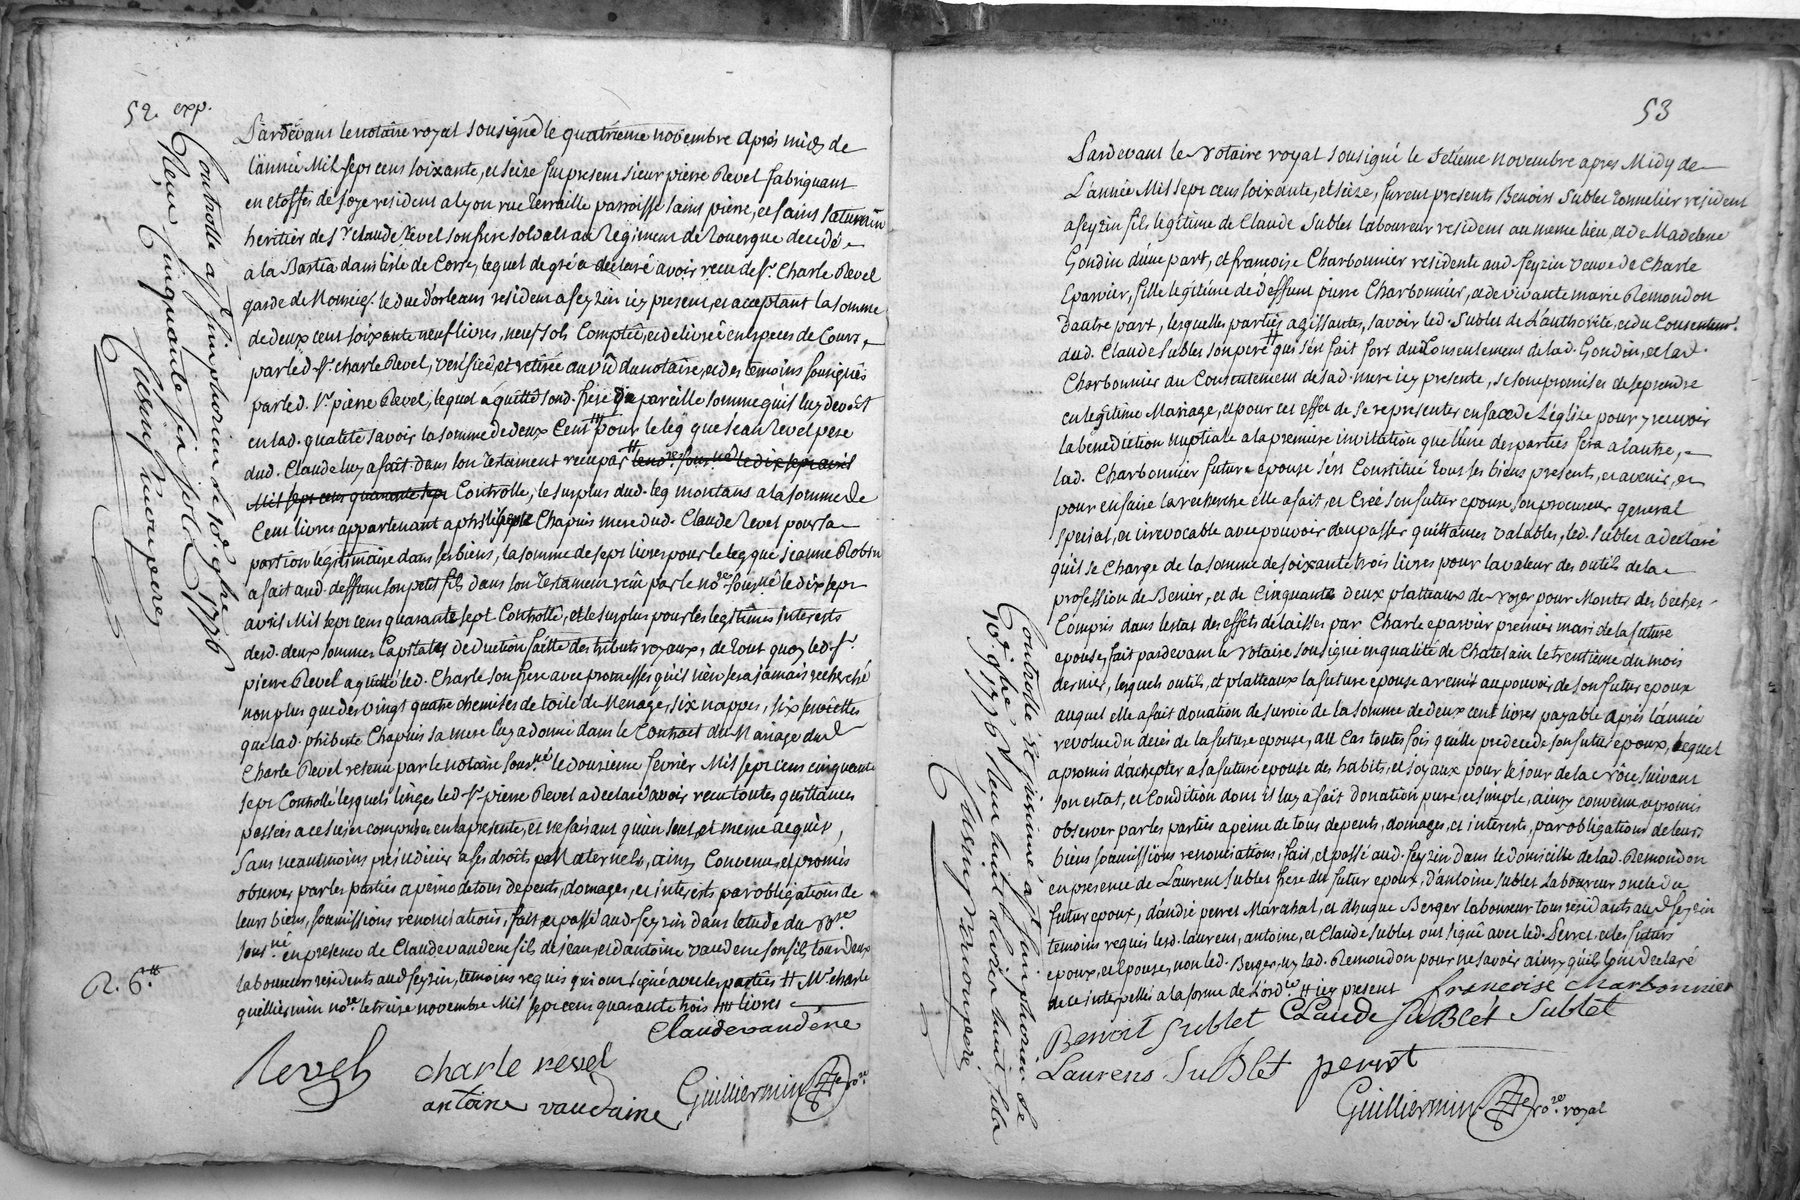 52. exp.
Pardevant le notaire royal sousigné le quatrieme novembre apres midy de
l'année Mil sept cens soixante, et seize fut present sieur pierre Revel fabriquant
en etoffes de soye resident a lyon rue Terraille parroisse saint pierre, et saint saturnin
heritier de Sr. Claude Revel son frere soldat au Regiment de Rouergue decedé
a la Bastia dans l'isle de Corse, lequel de gré a declaré avoir receu de Sr. Charle Revel
garde de Monseigr. le duc d'orleans resident a feyzin icy present, et acceptant la somme
de deux cent soixante neuf livres, neuf sols comptée, et delivrée en especes de Cours,
par led. Sr. charle Revel, verifiée, et retirée au vû du notaire, et des temoins sousignés
par led. Sr. pierre Revel, lequel a quitté sond. frere de pareille somme qu'il luy devoit
en lad. qualité savoir la somme de deux Cent tt pour le leg que jean Revel pere
dud. Claude luy a fait dans son testament receu par # le no.re sous.né le dix sept avril
Mil sept cens quarante sept Controllé, le surplus dud. leg montant a la somme de
Cent livres appartenant a philiberte Chapuis mere dud. Claude Revel pour sa
portion legitimaire dans ses biens, la somme de sept livres pour le leg que jeanne Robin
a fait aud. deffunt son petit fils dans son testament receu par le no.re sous.né le dix sept
avril Mil sept cens quarante sept Controllé, et le surplus pour les legitimes interets
desd. deux sommes Capitales deduction faitte des tributs royaux, de tout quoy led. Sr.
pierre Revel a quitté led. Charle son frere avec promesses qu'il n'en sera jamais recherché
non plus que des vingt quatre chemises de toile de Menage, six nappes, six serviettes
que lad. philiberte Chapuis sa mere luy a donné dans le Contract de Mariage dud.
Charle Revel retenu par le notaire sous.né le douzieme fevrier Mil sept cens cinquante
sept Controllé lesquels linges led. Sr. pierre Revel a declaré avoir receu toutes quittances
passées a ce sujet comprises en la presente, et ne faisant qu'un seul et meme acquis,
sans neantmoins prejudicier a ses droits paternels, ainsy Convenu, et promis
observer par les parties a peine de tous depents, domages, et interets, par obligations de
leurs biens, soumissions renonciations, fait, et passé aud. feyzin dans l'etude du no.re
sous.né en presence de Claude vaudene fils de jean, et d'antoine vaudene son fils tous deux
laboureurs residents aud. feyzin, temoins requis qui ont signé avec les parties # Me. charle
guilliermin no.re le treize novembre Mil sept cens quarante trois livres
Claude vaudene
Revel
charle revel
antoine vaudaine
Guilliermin no.re
R. 6.tt
Controllé a St. simphorien le 10e. 9bre 1776
Reçu cinquante six sols
53
Pardevant le Notaire royal sousigné le setieme novembre apres Midy de
L'année Mil sept cens soixante, et seize, furent presents Benoist Sublet tonnelier resident
a feyzin fils legitime de Claude Sublet laboureur resident au meme lieu, et de Madelene
Gondin d'une part, et francoise Charbonnier residente aud. feyzin veuve de Charle
Eparvier, fille legitime de deffunt pierre Charbonnier, et de vivante marie Remondon
d'autre part, lesquelles parties agissantes, savoir led. Sublet de L'authorité, et du Consentemt.
dud. Claude Sublet son pere # qui s'est fait fort du Consentement de lad. Gondin, et lad.
Charbonnier du Consentement de sad. mere icy presente, se sont promis de se prendre
en legitime Mariage, et pour cet effet de se representer en face de L'église pour y recevoir
la benediction nuptiale a la premiere invitation que l'une des parties fera a l'autre,
lad. Charbonnier future epouse s'est Constitué tous ses biens present, et avenir, et
pour en faire la recherche elle a fait, et Créé son futur epoux, son procureur general
special, et irrevocable avec pouvoir d'en passer quittances valables, led. Sublet a declaré
qu'il se Charge de la somme de soixante trois livres pour la valeur des outils de la
profession de Benier, et de Cinquante deux platteaux de noyer pour Monter des beches
Compris dans l'estat des effets delaissés par Charle eparvier premier mari de la future
epouse, fait pardevant le Notaire sousigné en qualité de Chatelain le trentieme du mois
dernier, lesquels outils, et platteaux la future epouse a remis au pouvoir de son futur epoux
auquel elle a fait donation de survie de la somme de deux cent livres payable apres l'année
revolue du deces de la future epouse, au Cas toutes fois qu'elle predecede son futur epoux, lequel
a promis d'achepter a sa future epouse des habits, et joyaux pour le jour de la Nôce suivant
son estat, et Condition dont il luy a fait donation pure, et simple, ainsy convenu, et promis
observer par les parties a peine de tous depents, domages, et interests, par obligations de leurs
biens soumissions renonciations, fait, et passé aud. feyzin dans le domicille de lad. Remondon
en presence de Laurent Sublet frere du futur epoux, d'antoine Sublet Laboureur oncle du
futur epoux, d'andré perret Marechal, et d'hugue Berger laboureur tous residants aud. feyzin
temoins requis lesd. laurent, antoine, et Claude Sublet ont signé avec led. Perret et les futurs
epoux, et epouse, non led. Berger, ny lad. Remondon pour ne savoir ainsy qu'ils l'ont declaré
de ce interpellé a la forme de L'ord.ce # icy present
francoise charbonnier
Benoit Sublet
Claude Sublet
Sublet
Laurens Sublet
perret
Guilliermin no.re royal
Controllé a St. simphorien le
10e. 9bre 1776 Reçu huit livres huit sols